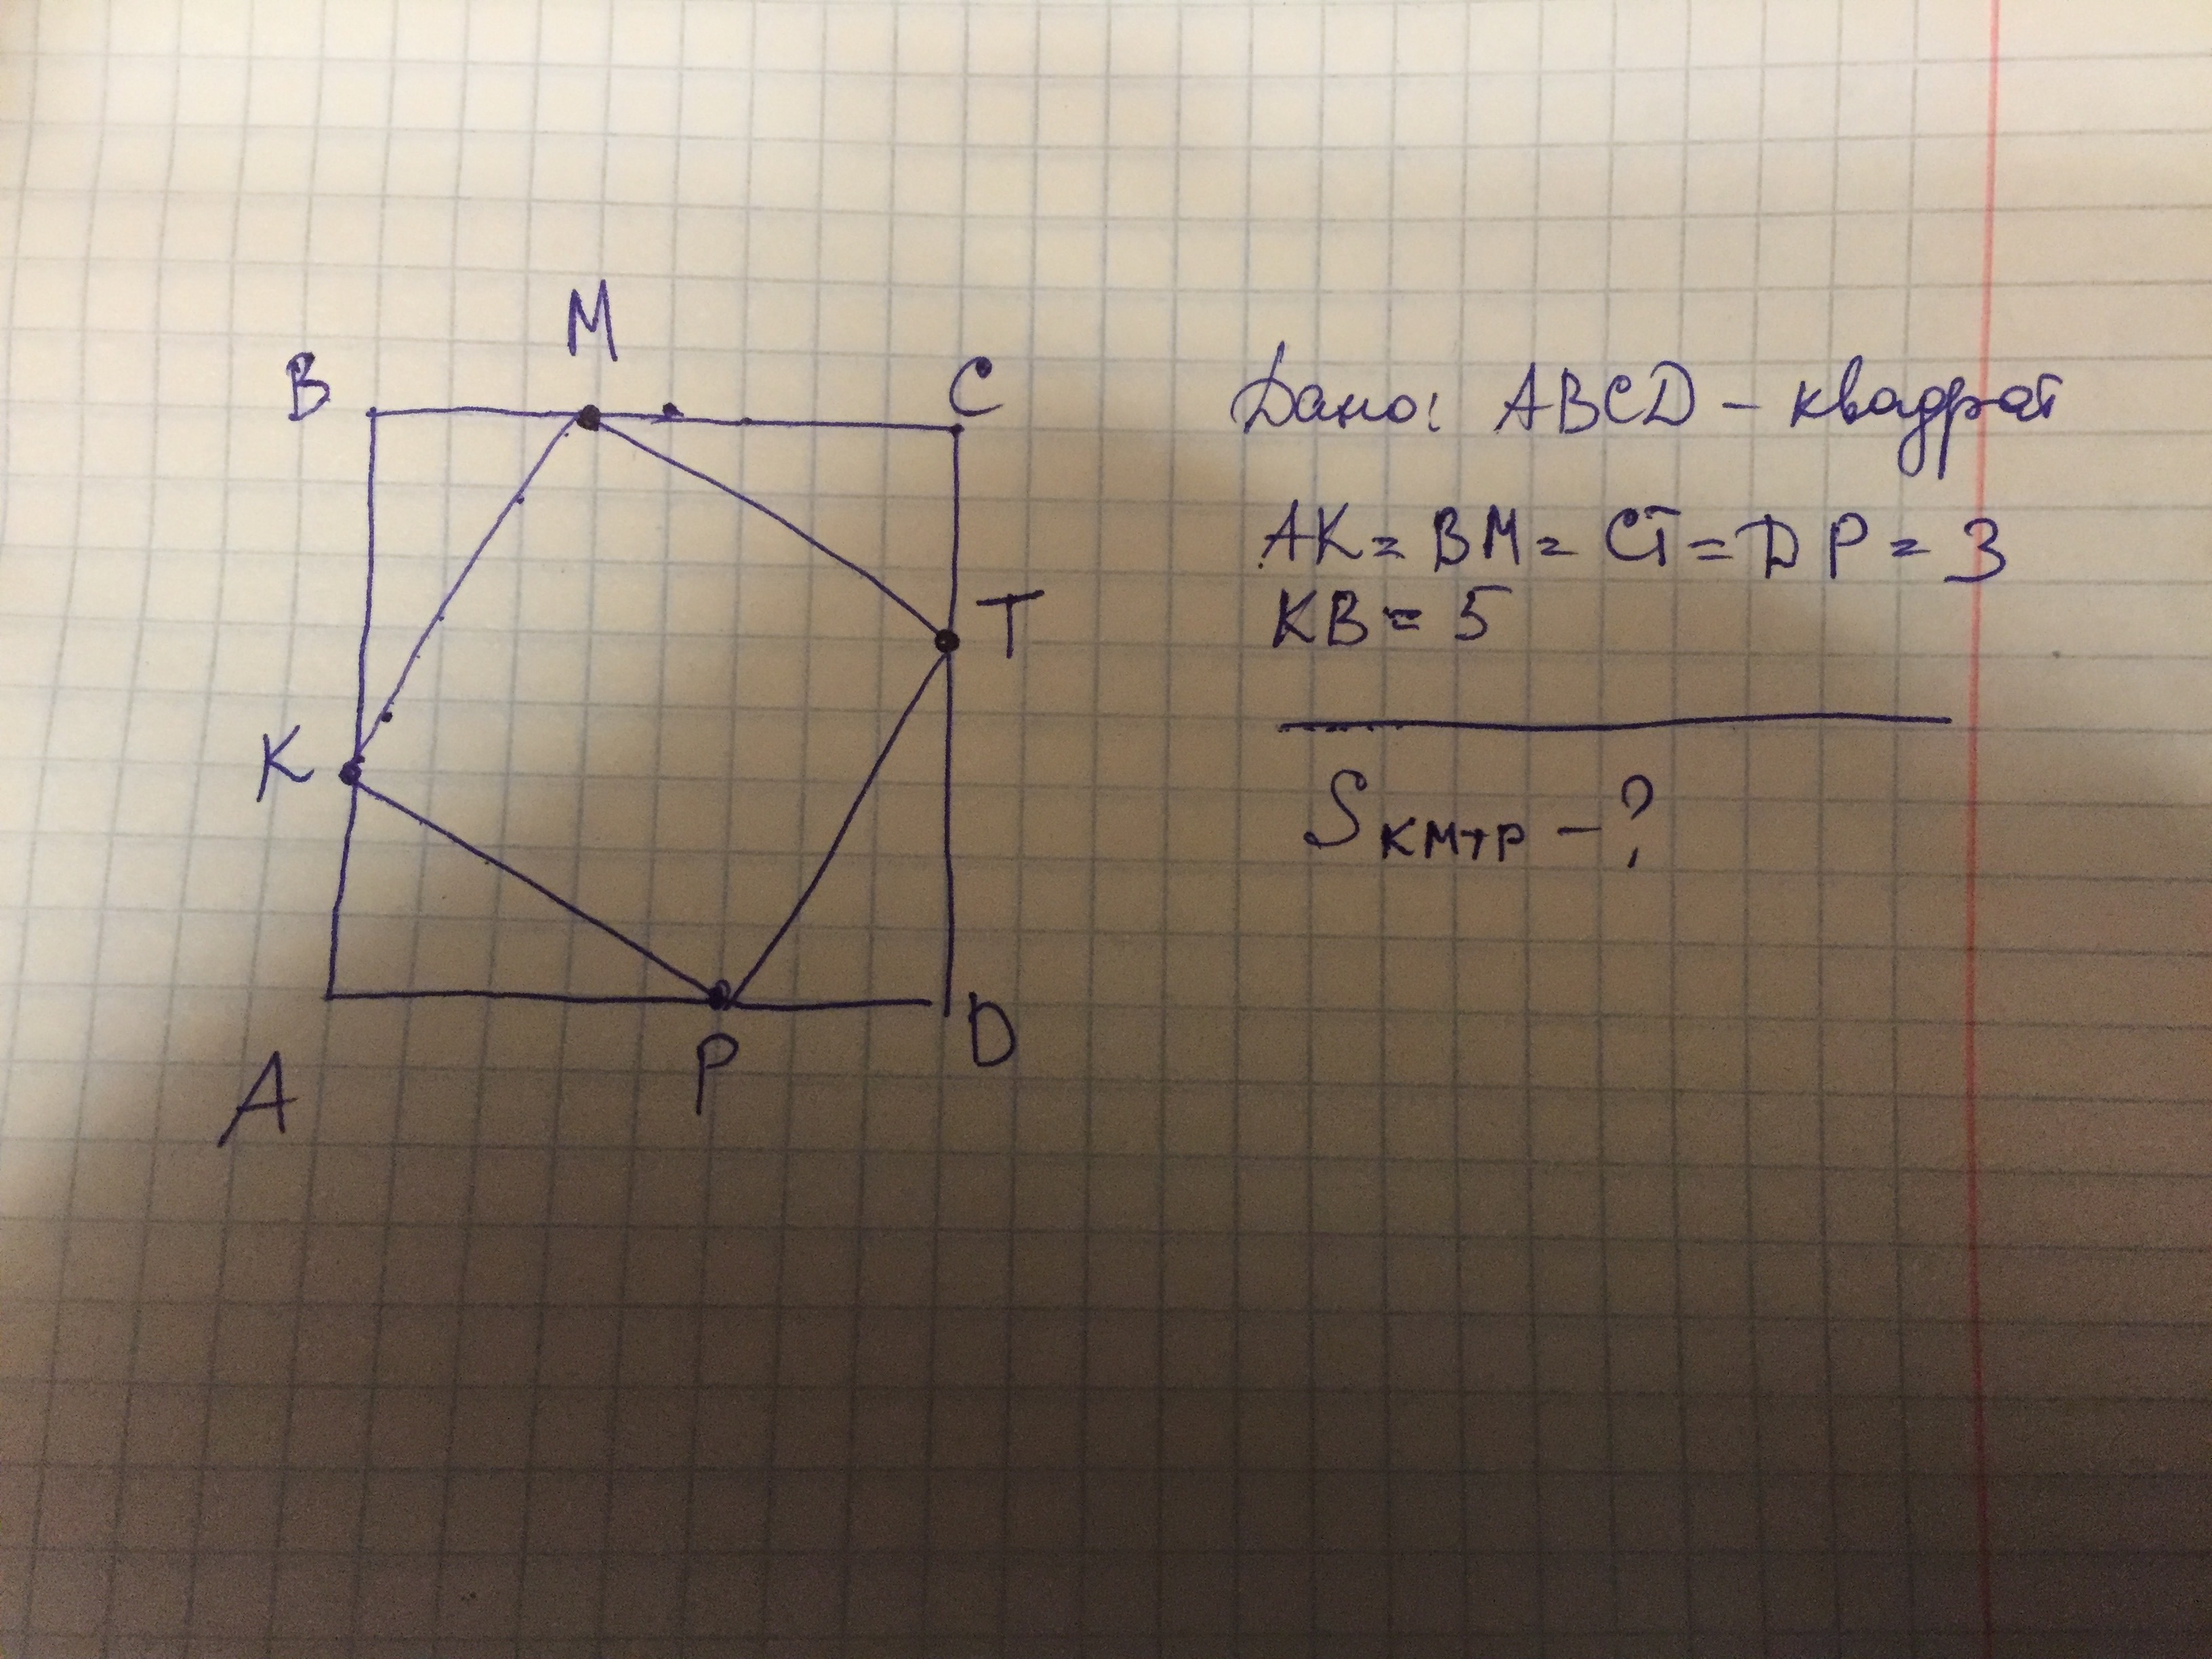 M
B
C
Дано: ABCD - квадрат
AK = BM = CT = DP = 3
T
KB = 5
K
S KMTP - ?
D
P
A